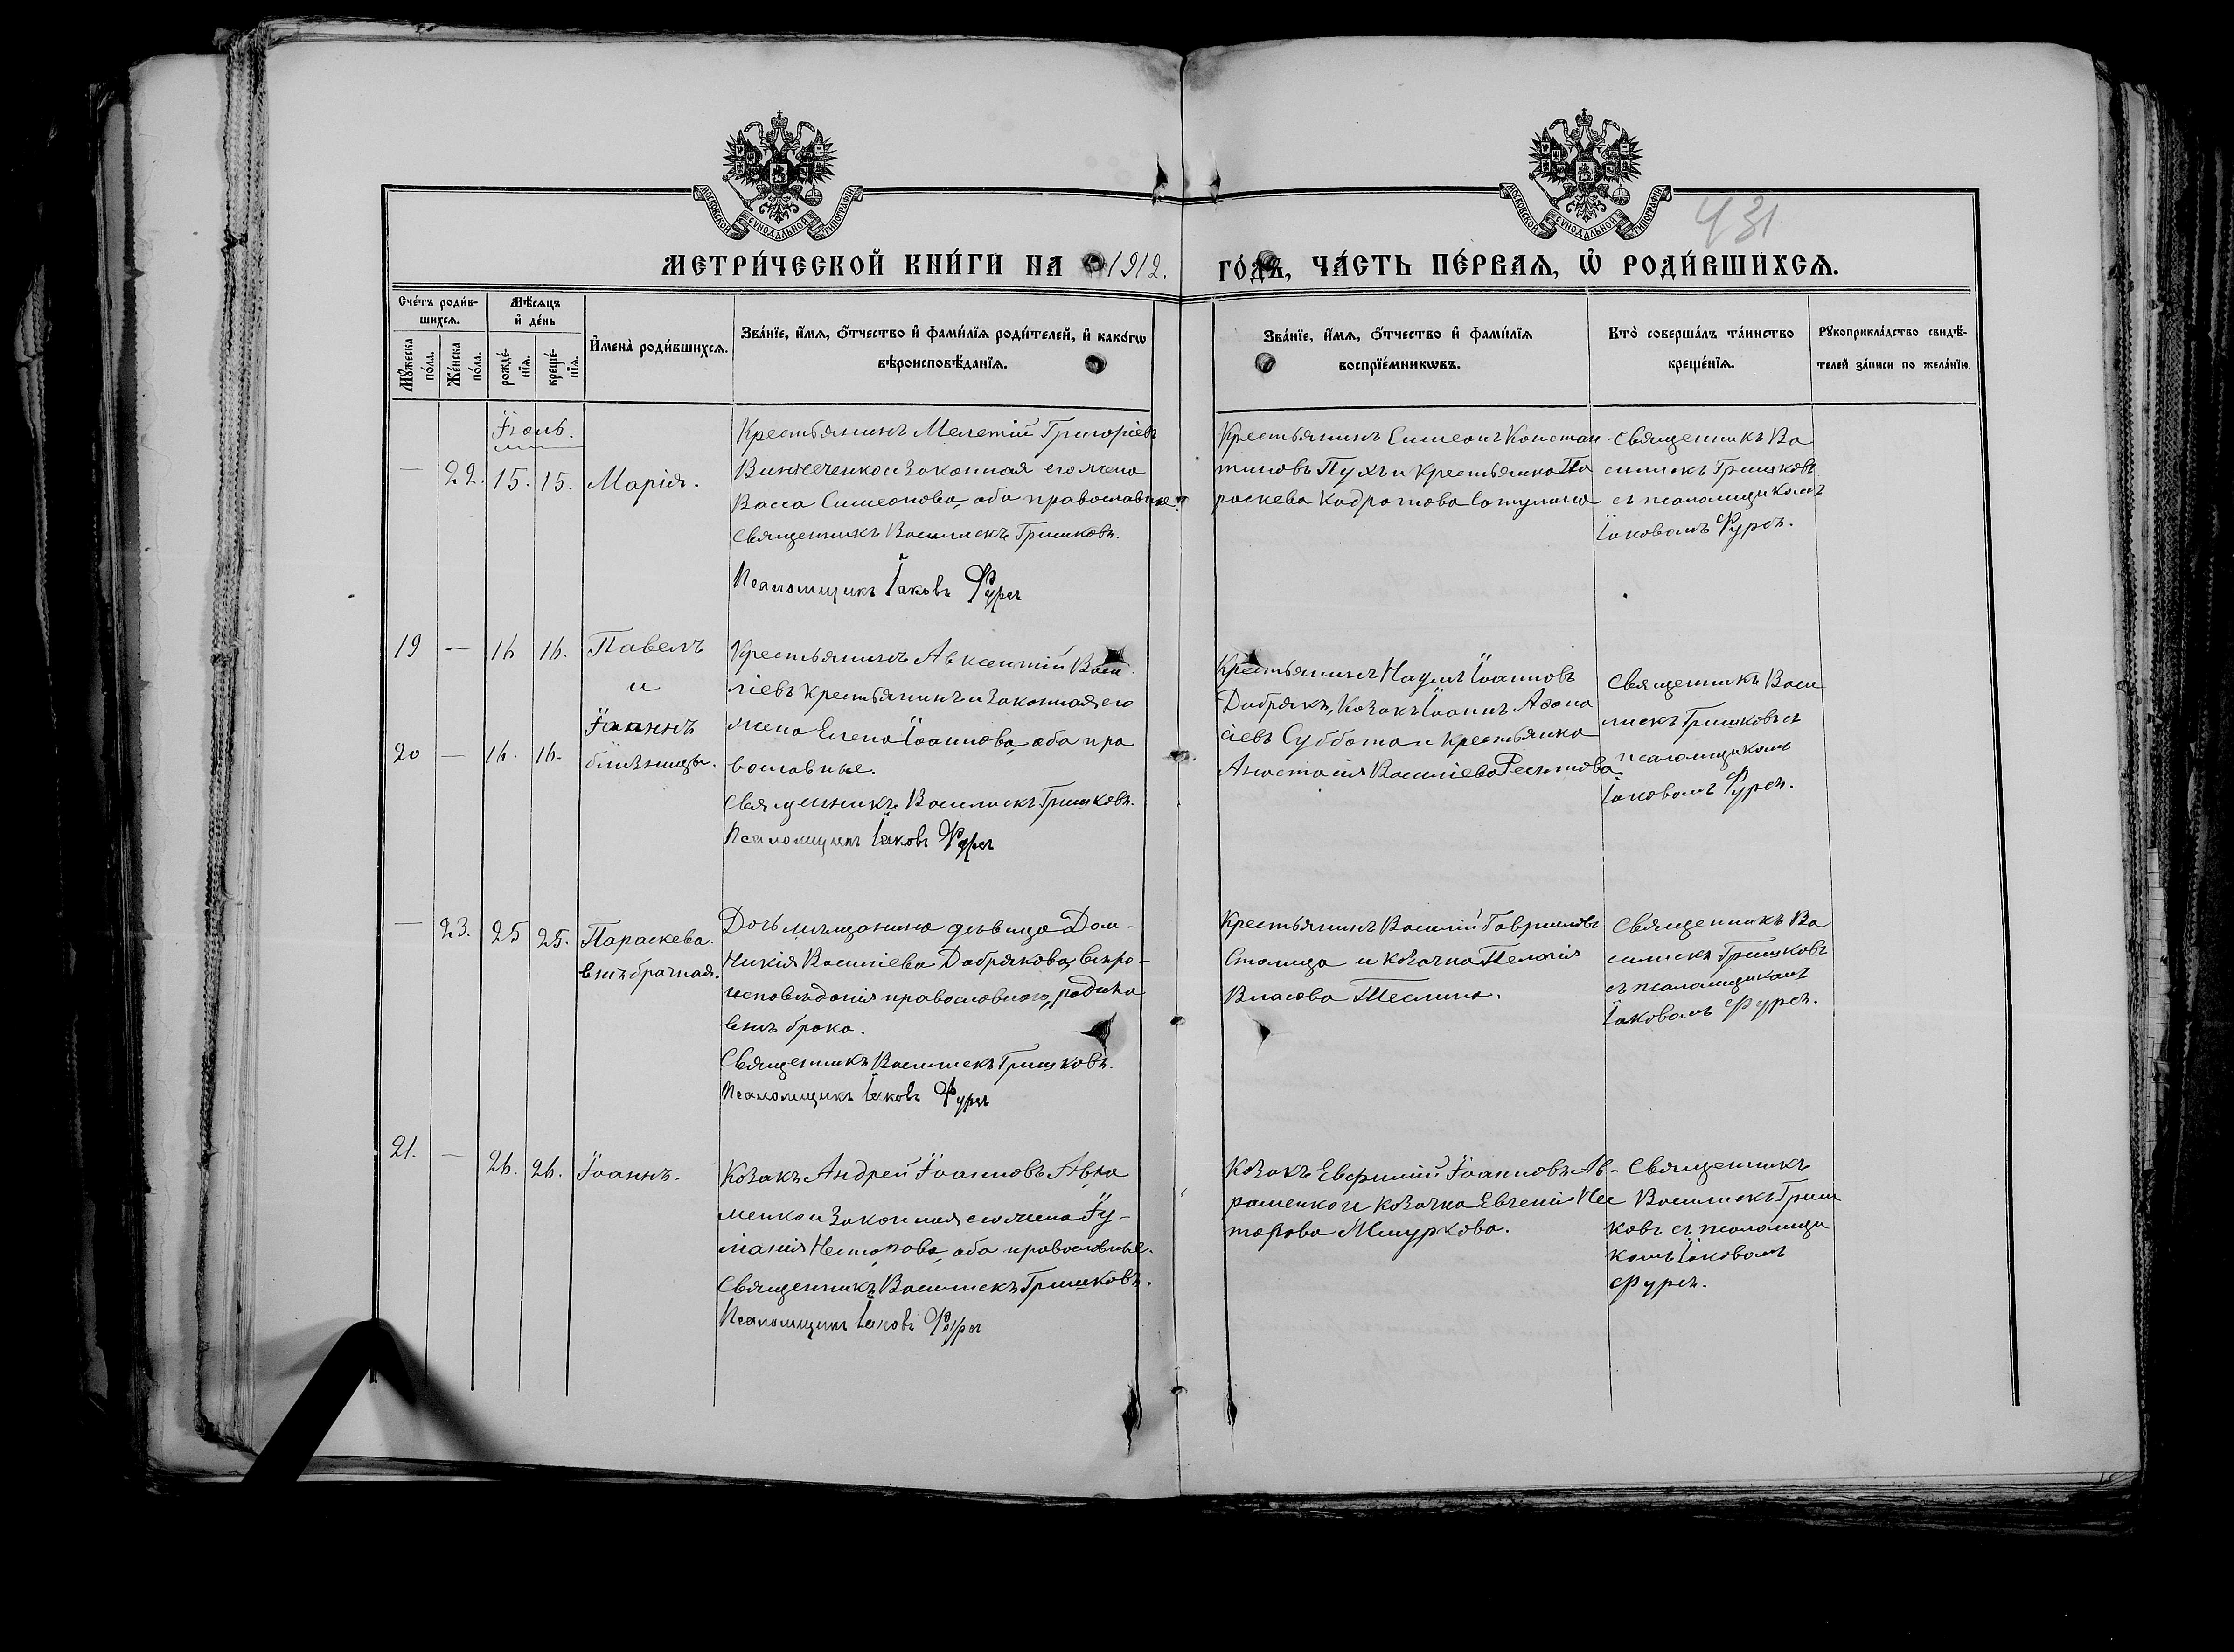 МОСКОВСКОЙ СѴНОДАЛЬНОЙ ТИПОГРАФІИ
МОСКОВСКОЙ СѴНОДАЛЬНОЙ ТИПОГРАФІИ
431
МЕТРИ́ЧЕСКОЙ КНИ́ГИ НА 1912. ГО́ДЪ, ЧА́СТЬ ПЕ́РВАЯ, Ѡ҆ РОДИ́ВШИХСЯ.
Сче́тъ роди́в-
шихся.
Мѣ́сяцъ
и҆ де́нь
Мꙋ́жеска
по́ла.
Же́нска
по́ла.
рожде́-
нїя.
креще́-
нїя.
И҆мена̀ роди́вшихся.
Зва́нїе, и҆́мя, ѻ҆́тчество и҆ фами́лїя роди́телей, и҆ како́гѡ
вѣроисповѣ́данїя.
Зва́нїе, и҆́мя, ѻ҆́тчество и҆ фами́лїя
воспрїе́мникѡвъ.
Кто̀ соверша́лъ та́инство
креще́нїя.
Рꙋкоприкла́дство свидѣ́-
телей за́писи по жела́нїю.
Іюль.
— 22. 15. 15. Марія.
Крестьянинъ Мелетій Григоріевъ
Винниченко и законная его жена
Васса Симеонова, оба православные.
Священникъ Василискъ Гришковъ.
Псаломщикъ Іаковъ Фурса
Крестьянинъ Симеонъ Констан-
тиновъ Пухъ и крестьянка Па
раскева Кодратова
Священникъ Ва
силискъ Гришковъ
съ псаломщикомъ
Іаковомъ Фурса.
19 — 16 16. Павелъ
и
Іоаннъ
20 — 16. 16. близнецы.
Крестьянинъ Авксентій Васи
ліевъ Крестьянинъ и законная его
жена Елена Іоаннова, оба пра
вославные.
Священникъ Василискъ Гришковъ.
Псаломщикъ Іаковъ Фурса
Крестьянинъ Наумъ Іоанновъ
Добрякъ, Козакъ Іоаннъ Афана
сіевъ Суббота и крестьянка
Анастасія Василіева
Священникъ Васи
лискъ Гришковъ съ
псаломщикомъ
Іаковомъ Фурса.
— 23. 25 25. Параскева.
внѣбрачная.
Дочь мѣщанина дѣвица Дом-
никія Василіева Добрякова, вѣро-
исповѣданія православного, родила
внѣ брака.
Священникъ Василискъ Гришковъ.
Псаломщикъ Іаковъ Фурса
Крестьянинъ Василій Гавриловъ
Столица и козачка Пелагія
Власова Теслина.
Священникъ Ва
силискъ Гришковъ
съ псаломщикомъ
Іаковомъ Фурса.
21. — 26. 26. Іоаннъ.
Козакъ Андрей Іоанновъ Авра
менко и законная его жена Іу-
ліанія Несторова, оба православные.
Священникъ Василискъ Гришковъ.
Псаломщикъ Іаковъ Фурса
Козакъ Евфимій Іоанновъ Ав-
раменко и козачка Евгенія Нес
торова Мишуркова.
Священникъ
Василискъ Гриш
ковъ съ псаломщи
комъ Іаковомъ
Фурса.